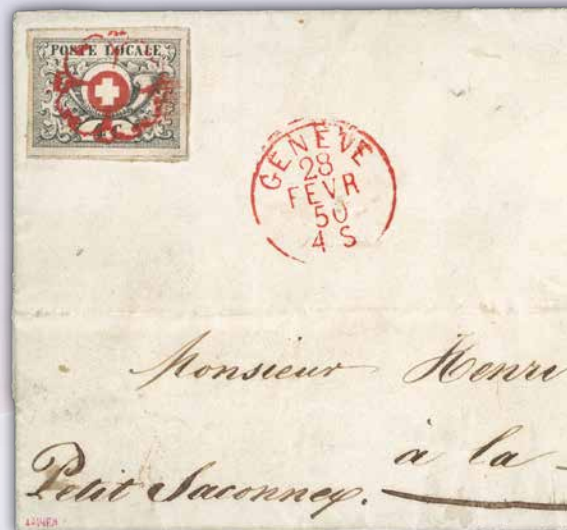 POSTE LOCALE
4 C.
GENEVE
28
FEVR
50
4 S
Monsieur Henri
à la
Petit Saconnex.